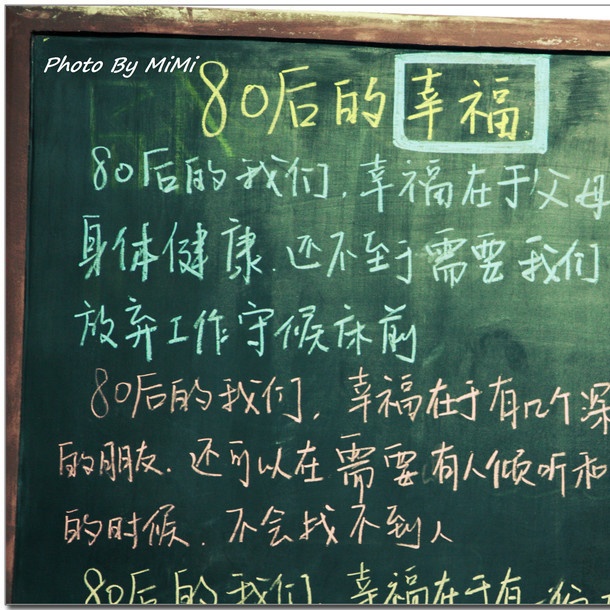 Photo By MiMi
80后的幸福
80后的我们.幸福在于父母
身体健康.还不至于需要我们
放弃工作守候床前
80后的我们.幸福在于有几个深
的朋友.还可以在需要有人倾听和
的时候.不会找不到人
80后的我们.幸福在于有一